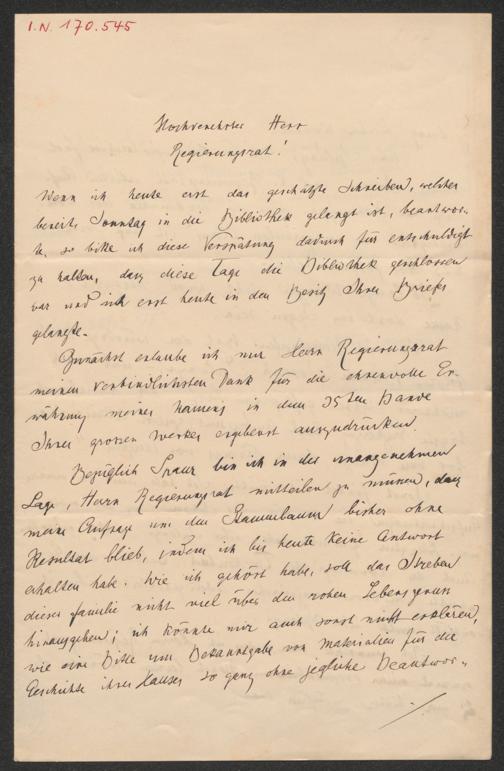 I.N. 170.545
Hochverehrter Herr
Regierungsrat!
Wenn ich heute erst das geschätzte Schreiben, welches
bereits Sonntag in die Bibliothek gelangt ist, beantwor-
te, so bitte ich diese Verspätung dadurch für entschuldigt
zu halten, dass diese Tage die Bibliothek geschlossen
war und ich erst heute in den Besitz Ihres Briefes
gelangte.
Zunächst erlaube ich mir Herrn Regierungsrat
meinen verbindlichsten Dank für die ehrenvolle Er-
wähnung meines Namens in dem 35ten Bande
Ihres grossen Werkes ergebenst auszudrücken
Bezüglich bin ich in der unangenehmen
Lage, Herrn Regierungsrat mitteilen zu müssen, dass
meine Anfrage um den Stammbaum bisher ohne
Resultat blieb, indem ich bis heute keine Antwort
erhalten habe. Wie ich gehört habe, soll das Streben
dieser Familie nicht viel über den rohen Lebensgenuss
hinausgehen; ich könnte mir auch sonst nicht erklären,
wie eine Bitte um Bekanntgabe von Materialien für die
Geschichte ihres Hauses so ganz ohne jegliche Beantwor-